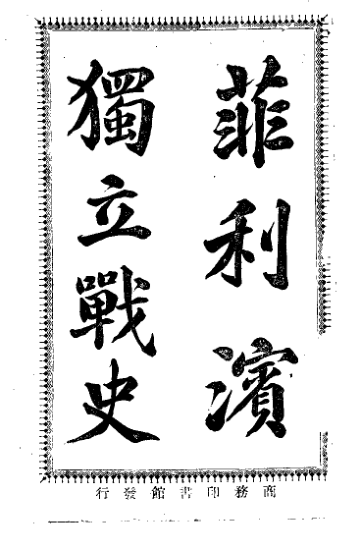 菲利濱
獨立戰史
商務印書館發行